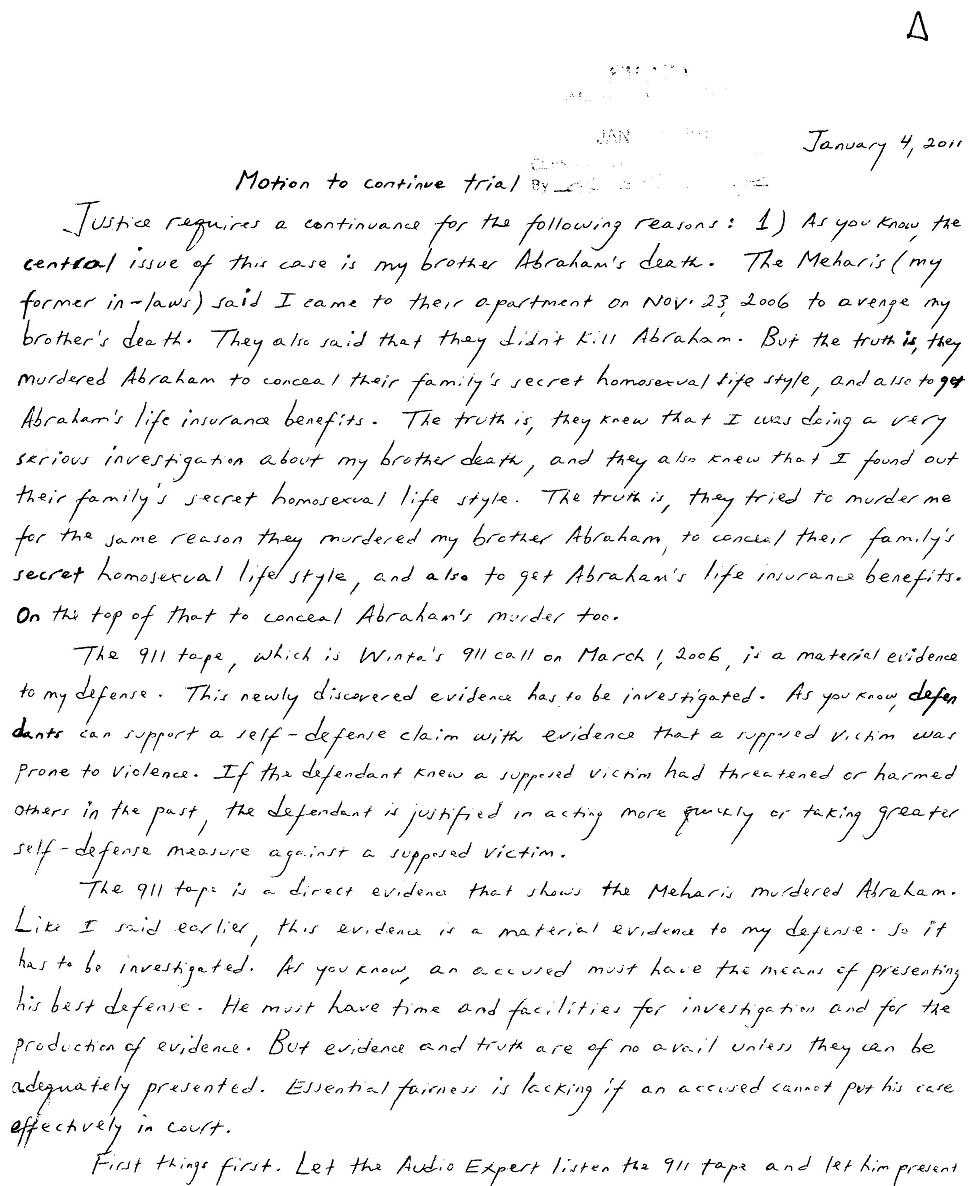 Δ
JAN
January 4, 2011
Motion to continue trial By
Justice requires a continuance for the following reasons: 1) As you know, the
central issue of this case is my brother Abraham's death. The Meharis (my
former in-laws) said I came to their apartment on Nov. 23, 2006 to avenge my
brother's death. They also said that they didn't kill Abraham. But the truth is, they
murdered Abraham to conceal their family's secret homosexual life style, and also to get
Abraham's life insurance benefits. The truth is, they knew that I was doing a very
serious investigation about my brother death, and they also knew that I found out
their family's secret homosexual life style. The truth is, they tried to murder me
for the same reason they murdered my brother Abraham, to conceal their family's
secret homosexual life style, and also to get Abraham's life insurance benefits.
On the top of that to conceal Abraham's murder too.
The 911 tape, which is Winta's 911 call on March 1, 2006, is a material evidence
to my defense. This newly discovered evidence has to be investigated. As you know, defen
dants can support a self-defense claim with evidence that a supposed victim was
prone to violence. If the defendant knew a supposed victim had threatened or harmed
others in the past, the defendant is justified in acting more quickly or taking greater
self-defense measure against a supposed victim.
The 911 tape is a direct evidence that shows the Meharis murdered Abraham.
Like I said earlier, this evidence is a material evidence to my defense. So it
has to be investigated. As you know, an accused must have the means of presenting
his best defense. He must have time and facilities for investigation and for the
production of evidence. But evidence and truth are of no avail unless they can be
adequately presented. Essential fairness is lacking if an accused cannot put his case
effectively in court.
First things first. Let the Audio Expert listen the 911 tape and let him present